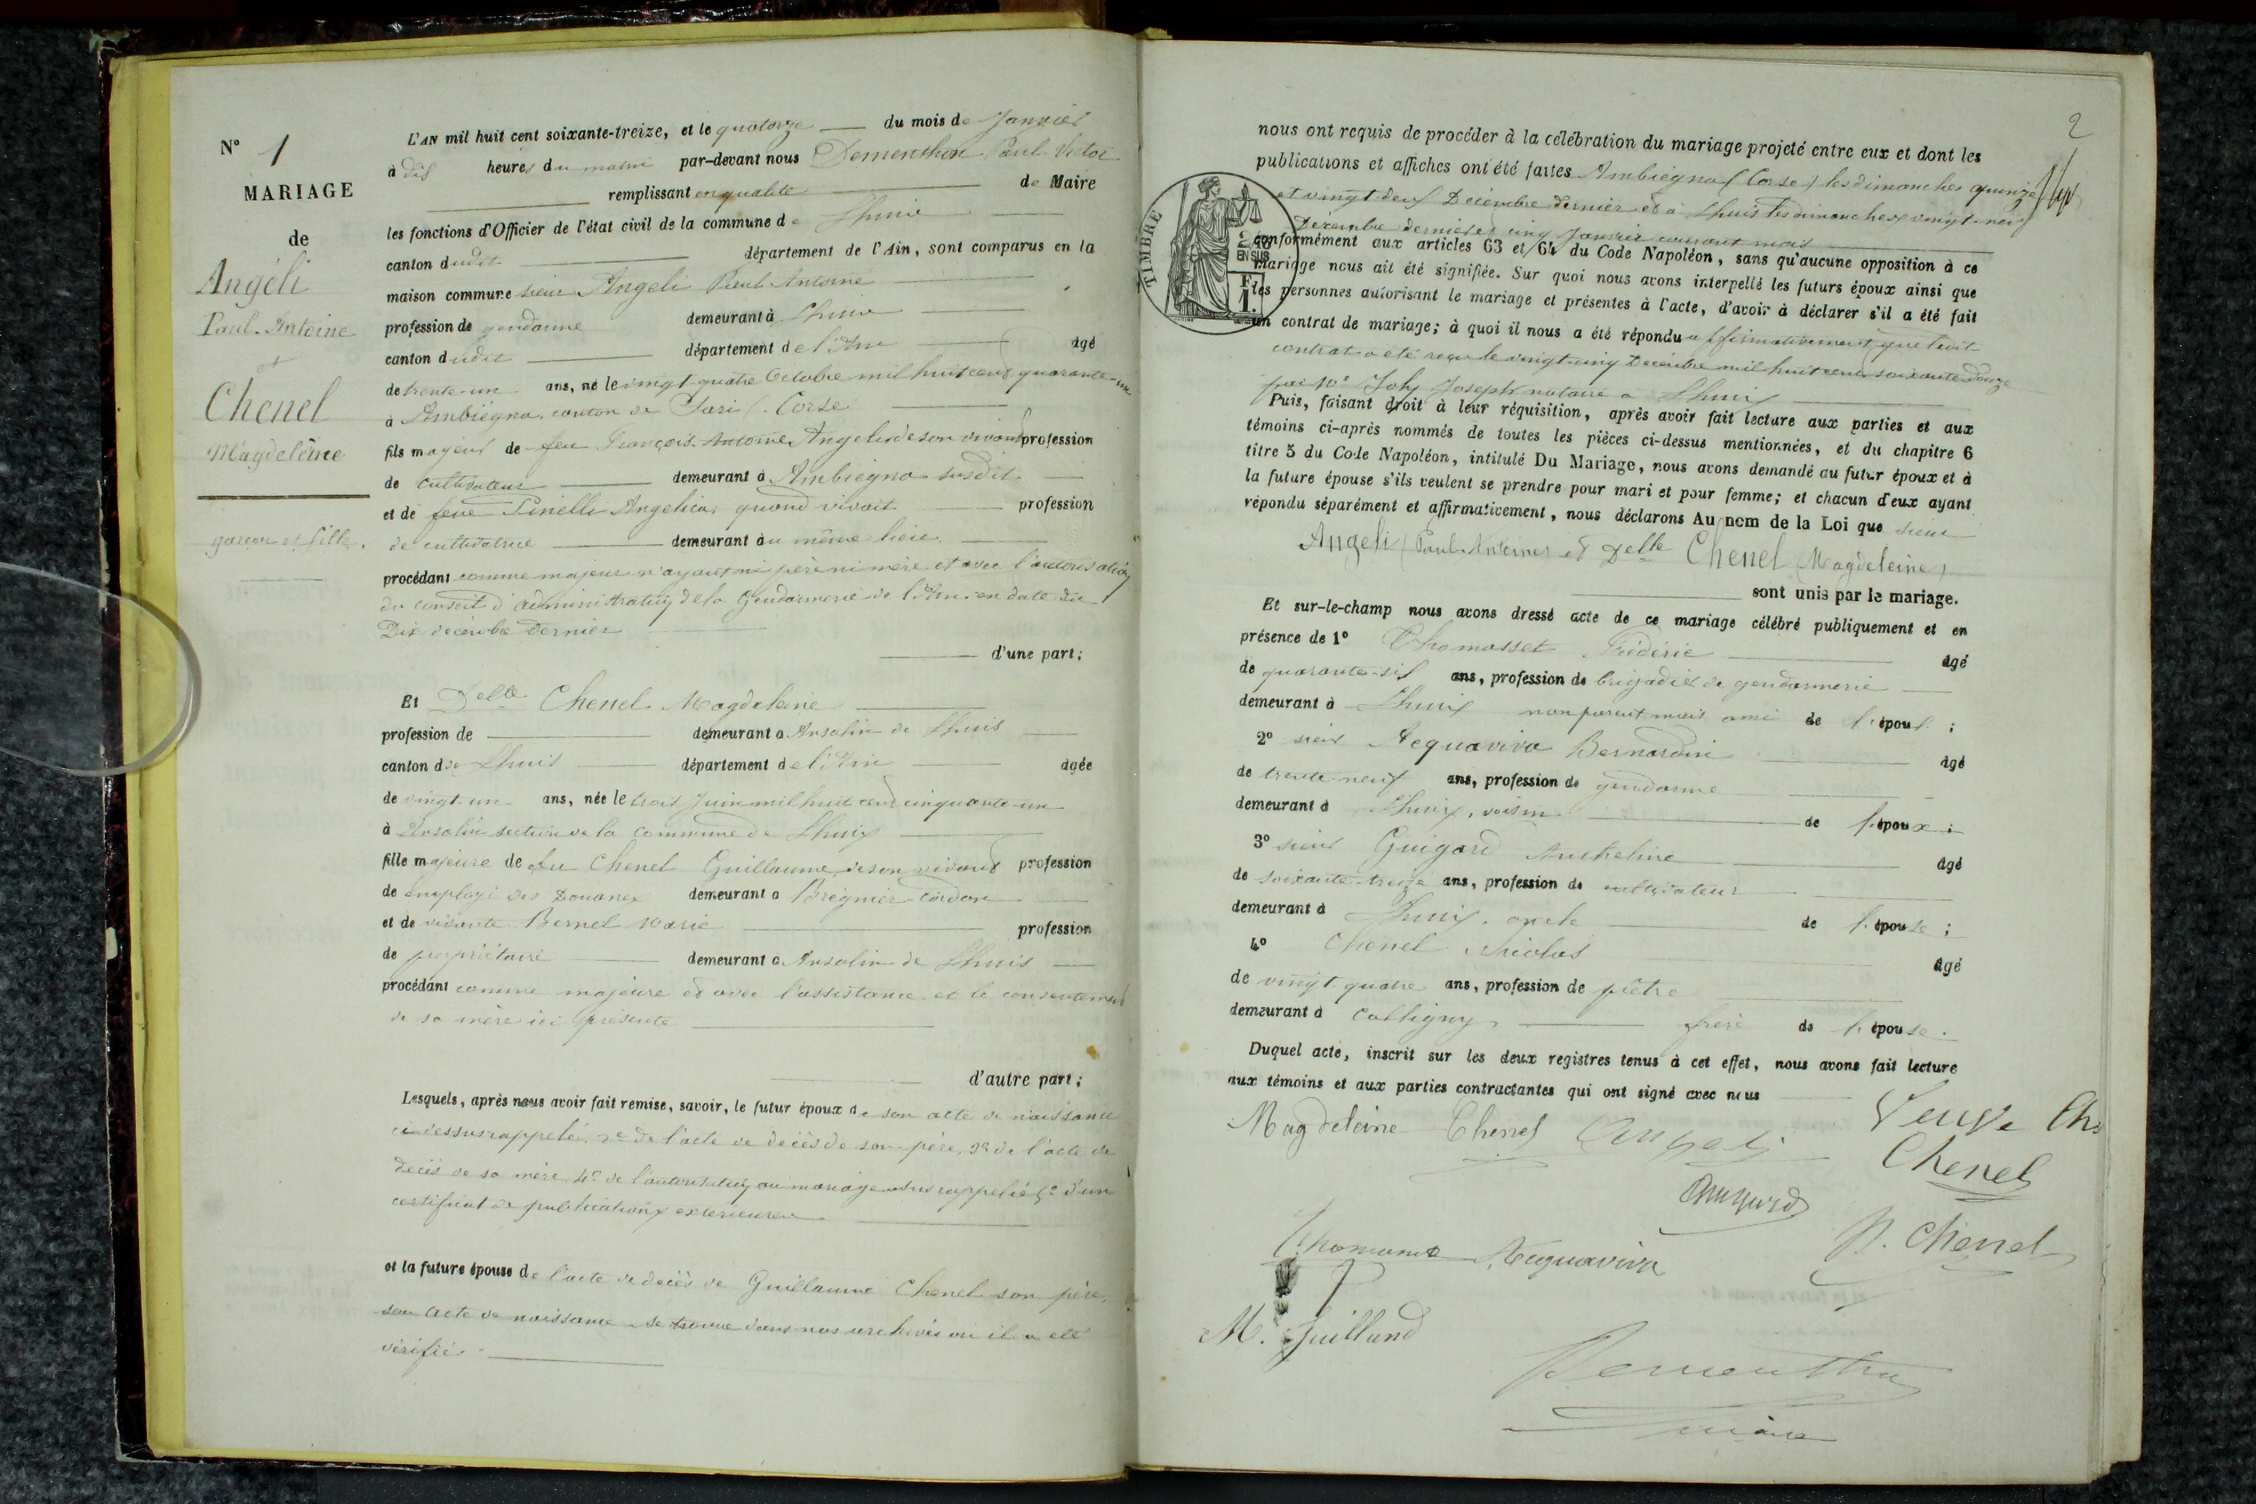 N° 1
MARIAGE
de
Angéli
Paul-Antoine
et
Chenel
Magdeleine
garçon et fille.
L'AN mil huit cent soixante-treize, et le quatorze du mois de Janvier
à dix heures du matin par-devant nous Dementhon Paul Victor
remplissant en qualité de Maire
les fonctions d'Officier de l'état civil de la commune de Lhuis
canton dudit département de l'Ain, sont comparus en la
maison commune sieur Angeli Paul Antoine
profession de gendarme demeurant à Lhuis
canton dudit département de l'Ain âgé
de trente-un ans, né le vingt quatre Octobre mil huit cent quarante-un
à Ambiegna, canton de Sari (Corse
fils majeur de feu François-Antoine Angeli de son vivant profession
de cultivateur demeurant à Ambiegna susdit
et de feue Pinelli Angelica, quand vivait profession
de cultivatrice demeurant au même lieu
procédant comme majeur n'ayant ni père ni mère et avec l'autorisation
du conseil d'administration de la Gendarmerie de l'Ain en date du
Dix décembre dernier
d'une part;
Et Delle Chenel Magdeleine
profession de demeurant à Ansolin de Lhuis
canton de Lhuis département de l'Ain âgée
de vingt-un ans, née le trois Juin mil huit cent cinquante-un
à Ansolin section de la commune de Lhuis
fille majeure de feu Chenel Guillaume, de son vivant profession
de Employé des Douanes demeurant à Brégnier-Cordon
et de vivante Bernel Marie profession
de propriétaire demeurant à Ansolin de Lhuis
procédant comme majeure et avec l'assistance et le consentement
de sa mère ici présente
d'autre part;
Lesquels, après nous avoir fait remise, savoir, le futur époux de son acte de naissance
ci-dessus rappelé, 2° de l'acte de décès de son père, 3° de l'acte de
décès de sa mère 4° de l'autorisation au mariage sus rappelé 5° d'un
certificat de publications extérieures
et la future épouse de l'acte de décès de Guillaume Chenel son père,
son acte de naissance se trouve dans nos archives où il a été
vérifié.
2
nous ont requis de procéder à la célébration du mariage projeté entre eux et dont les
publications et affiches ont été faites Ambiegna (Corse) les dimanches quinze
et vingt-deux Décembre dernier et à Lhuis les dimanches vingt-neuf
Décembre dernier et cinq Janvier courant mois
TIMBRE
EN SUS
conformément aux articles 63 et 64 du Code Napoléon, sans qu'aucune opposition à ce
mariage nous ait été signifiée. Sur quoi nous avons interpellé les futurs époux ainsi que
les personnes autorisant le mariage et présentes à l'acte, d'avoir à déclarer s'il a été fait
un contrat de mariage; à quoi il nous a été répondu affirmativement que ledit
contrat a été reçu le vingt-cinq Décembre mil huit cent soixante douze
par Me Joly Joseph notaire à Lhuis
Puis, faisant droit à leur réquisition, après avoir fait lecture aux parties et aux
témoins ci-après nommés de toutes les pièces ci-dessus mentionnées, et du chapitre 6
titre 5 du Code Napoléon, intitulé Du Mariage, nous avons demandé au futur époux et à
la future épouse s'ils veulent se prendre pour mari et pour femme; et chacun d'eux ayant
répondu séparément et affirmativement, nous déclarons Au nom de la Loi que sieur
Angeli (Paul-Antoine) et Delle Chenel (Magdeleine)
sont unis par le mariage.
Et sur-le-champ nous avons dressé acte de ce mariage célébré publiquement et en
présence de 1° Thomasset Frédéric âgé
de quarante-six ans, profession de brigadier de gendarmerie
demeurant à Lhuis non parent mais ami de l'époux;
2° sieur Acquaviva Bernardin âgé
de trente-neuf ans, profession de gendarme
demeurant à Lhuis, voisin de l'époux;
3° sieur Guigard Anthelme âgé
de soixante-treize ans, profession de cultivateur
demeurant à Lhuis, oncle de l'épouse;
4° Chenel Nicolas âgé
de vingt quatre ans, profession de prêtre
demeurant à Colligny frère de l'épouse.
Duquel acte, inscrit sur les deux registres tenus à cet effet, nous avons fait lecture
aux témoins et aux parties contractantes qui ont signé avec nous
Magdeleine Chenel Angeli Veuve Che
Chenel
Guigard
Thomasset Acquaviva N. Chenel
M. Juilland
Dementhon
maire